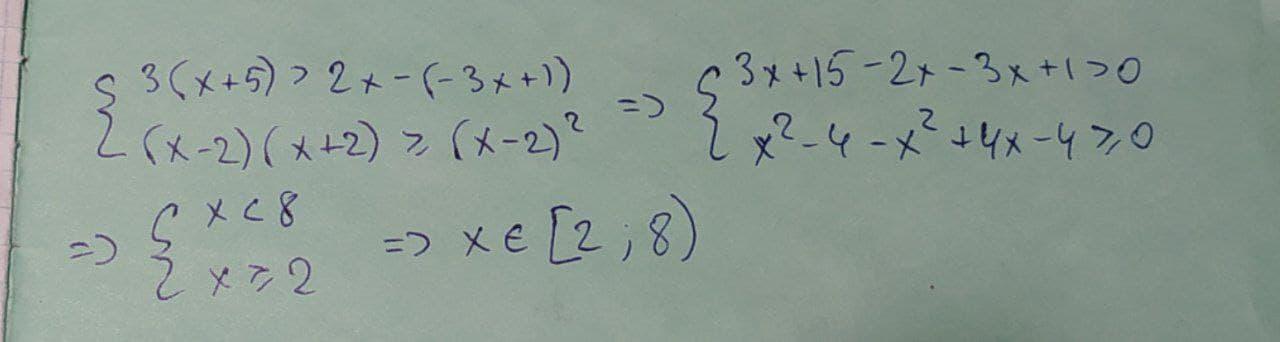 { 3(x+5) > 2x-(-3x+1)
(x-2)(x+2) ⩾ (x-2)² => { 3x+15-2x-3x+1>0
x²-4-x²+4x-4⩾0
=> { x<8
x⩾2 => x∈[2;8)